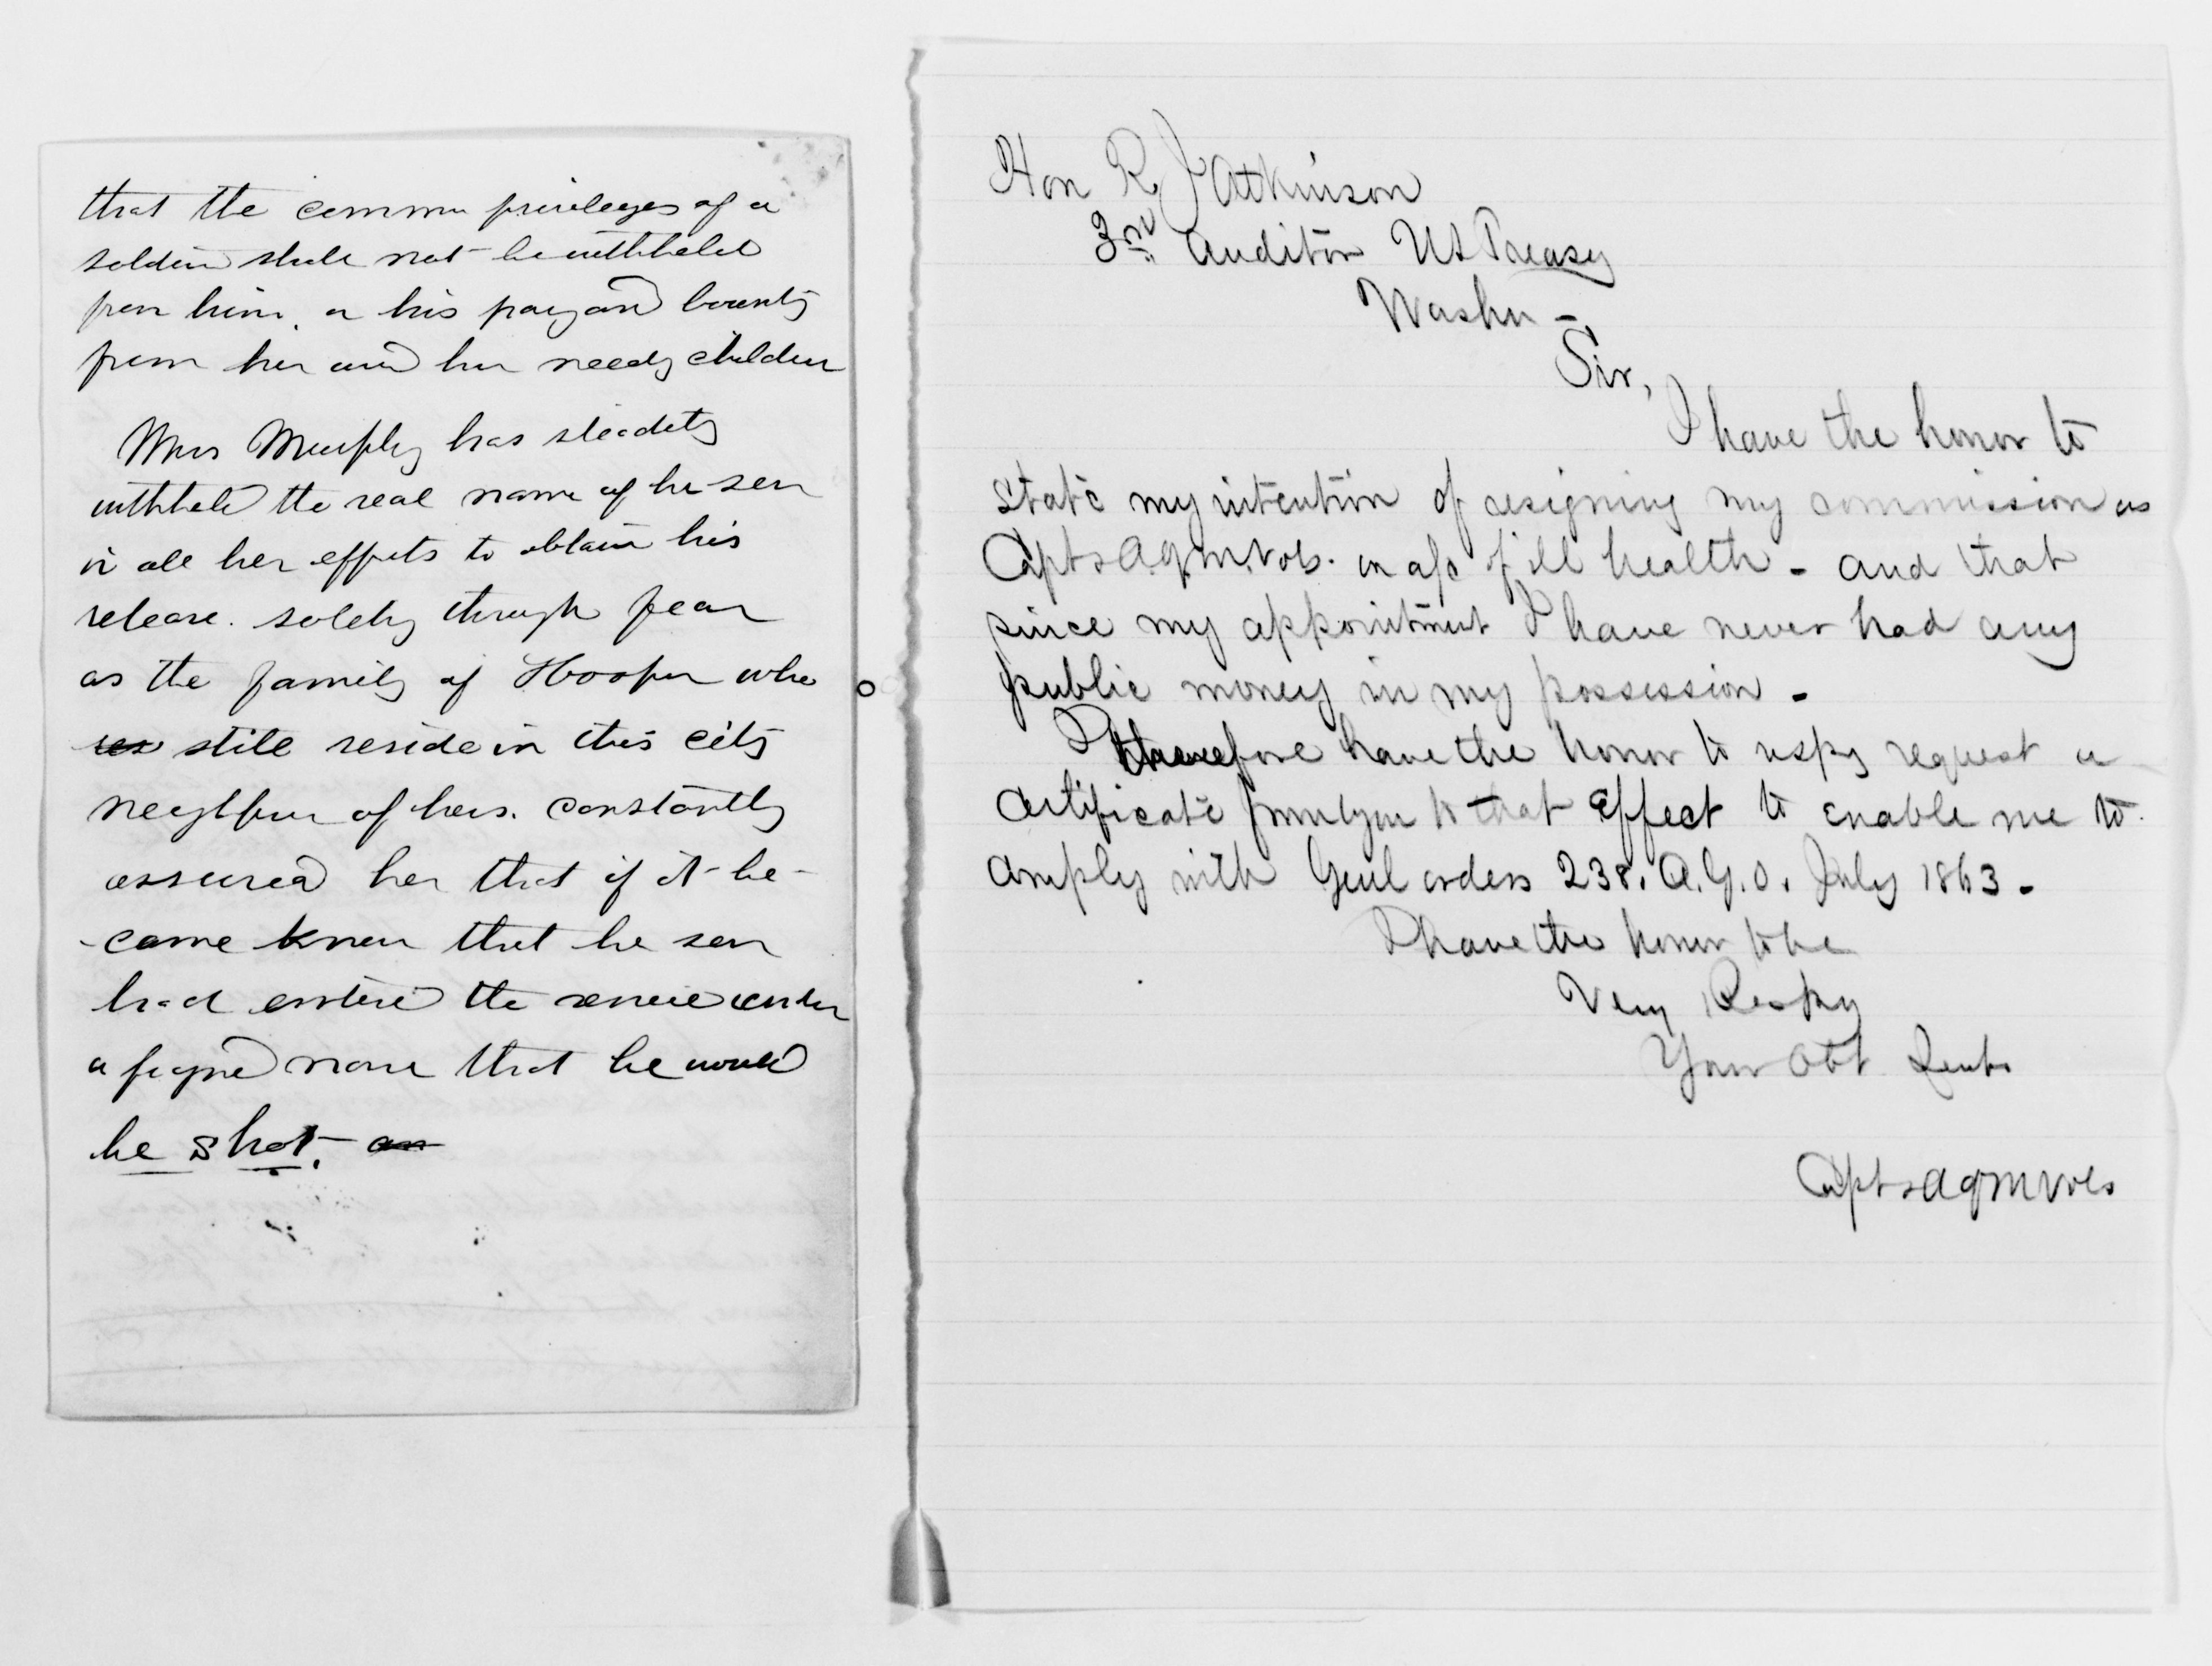 that the common privileges of a
soldier shall not be withheld
from him, or his pay and bounty
from her and her needy children
Mrs Murphy has steadily
withheld the real name of her son
in all her efforts to obtain his
release. solely through fear
as the family of Hooper who
still reside in this city
neighbour of hers. constantly
assured her that if it be-
-came known that he son
had entered the service under
a feigned name that he would
be shot.
Hon R J Atkinson
3rd Auditor US Treasy
Washn -
Sir,
I have the honor to
state my intention of resigning my commission as
Capt & AQM. Vols. on a/c of ill health - and that
since my appointment I have never had any
public money in my possession -
I therefore have the honor to respy request a
certificate from you to that effect to enable me to
comply with Genl orders 238. A.G.O. July 1863 -
I have the honor to be
Very Respy
Your Obt Servt
Capt & AQM Vols